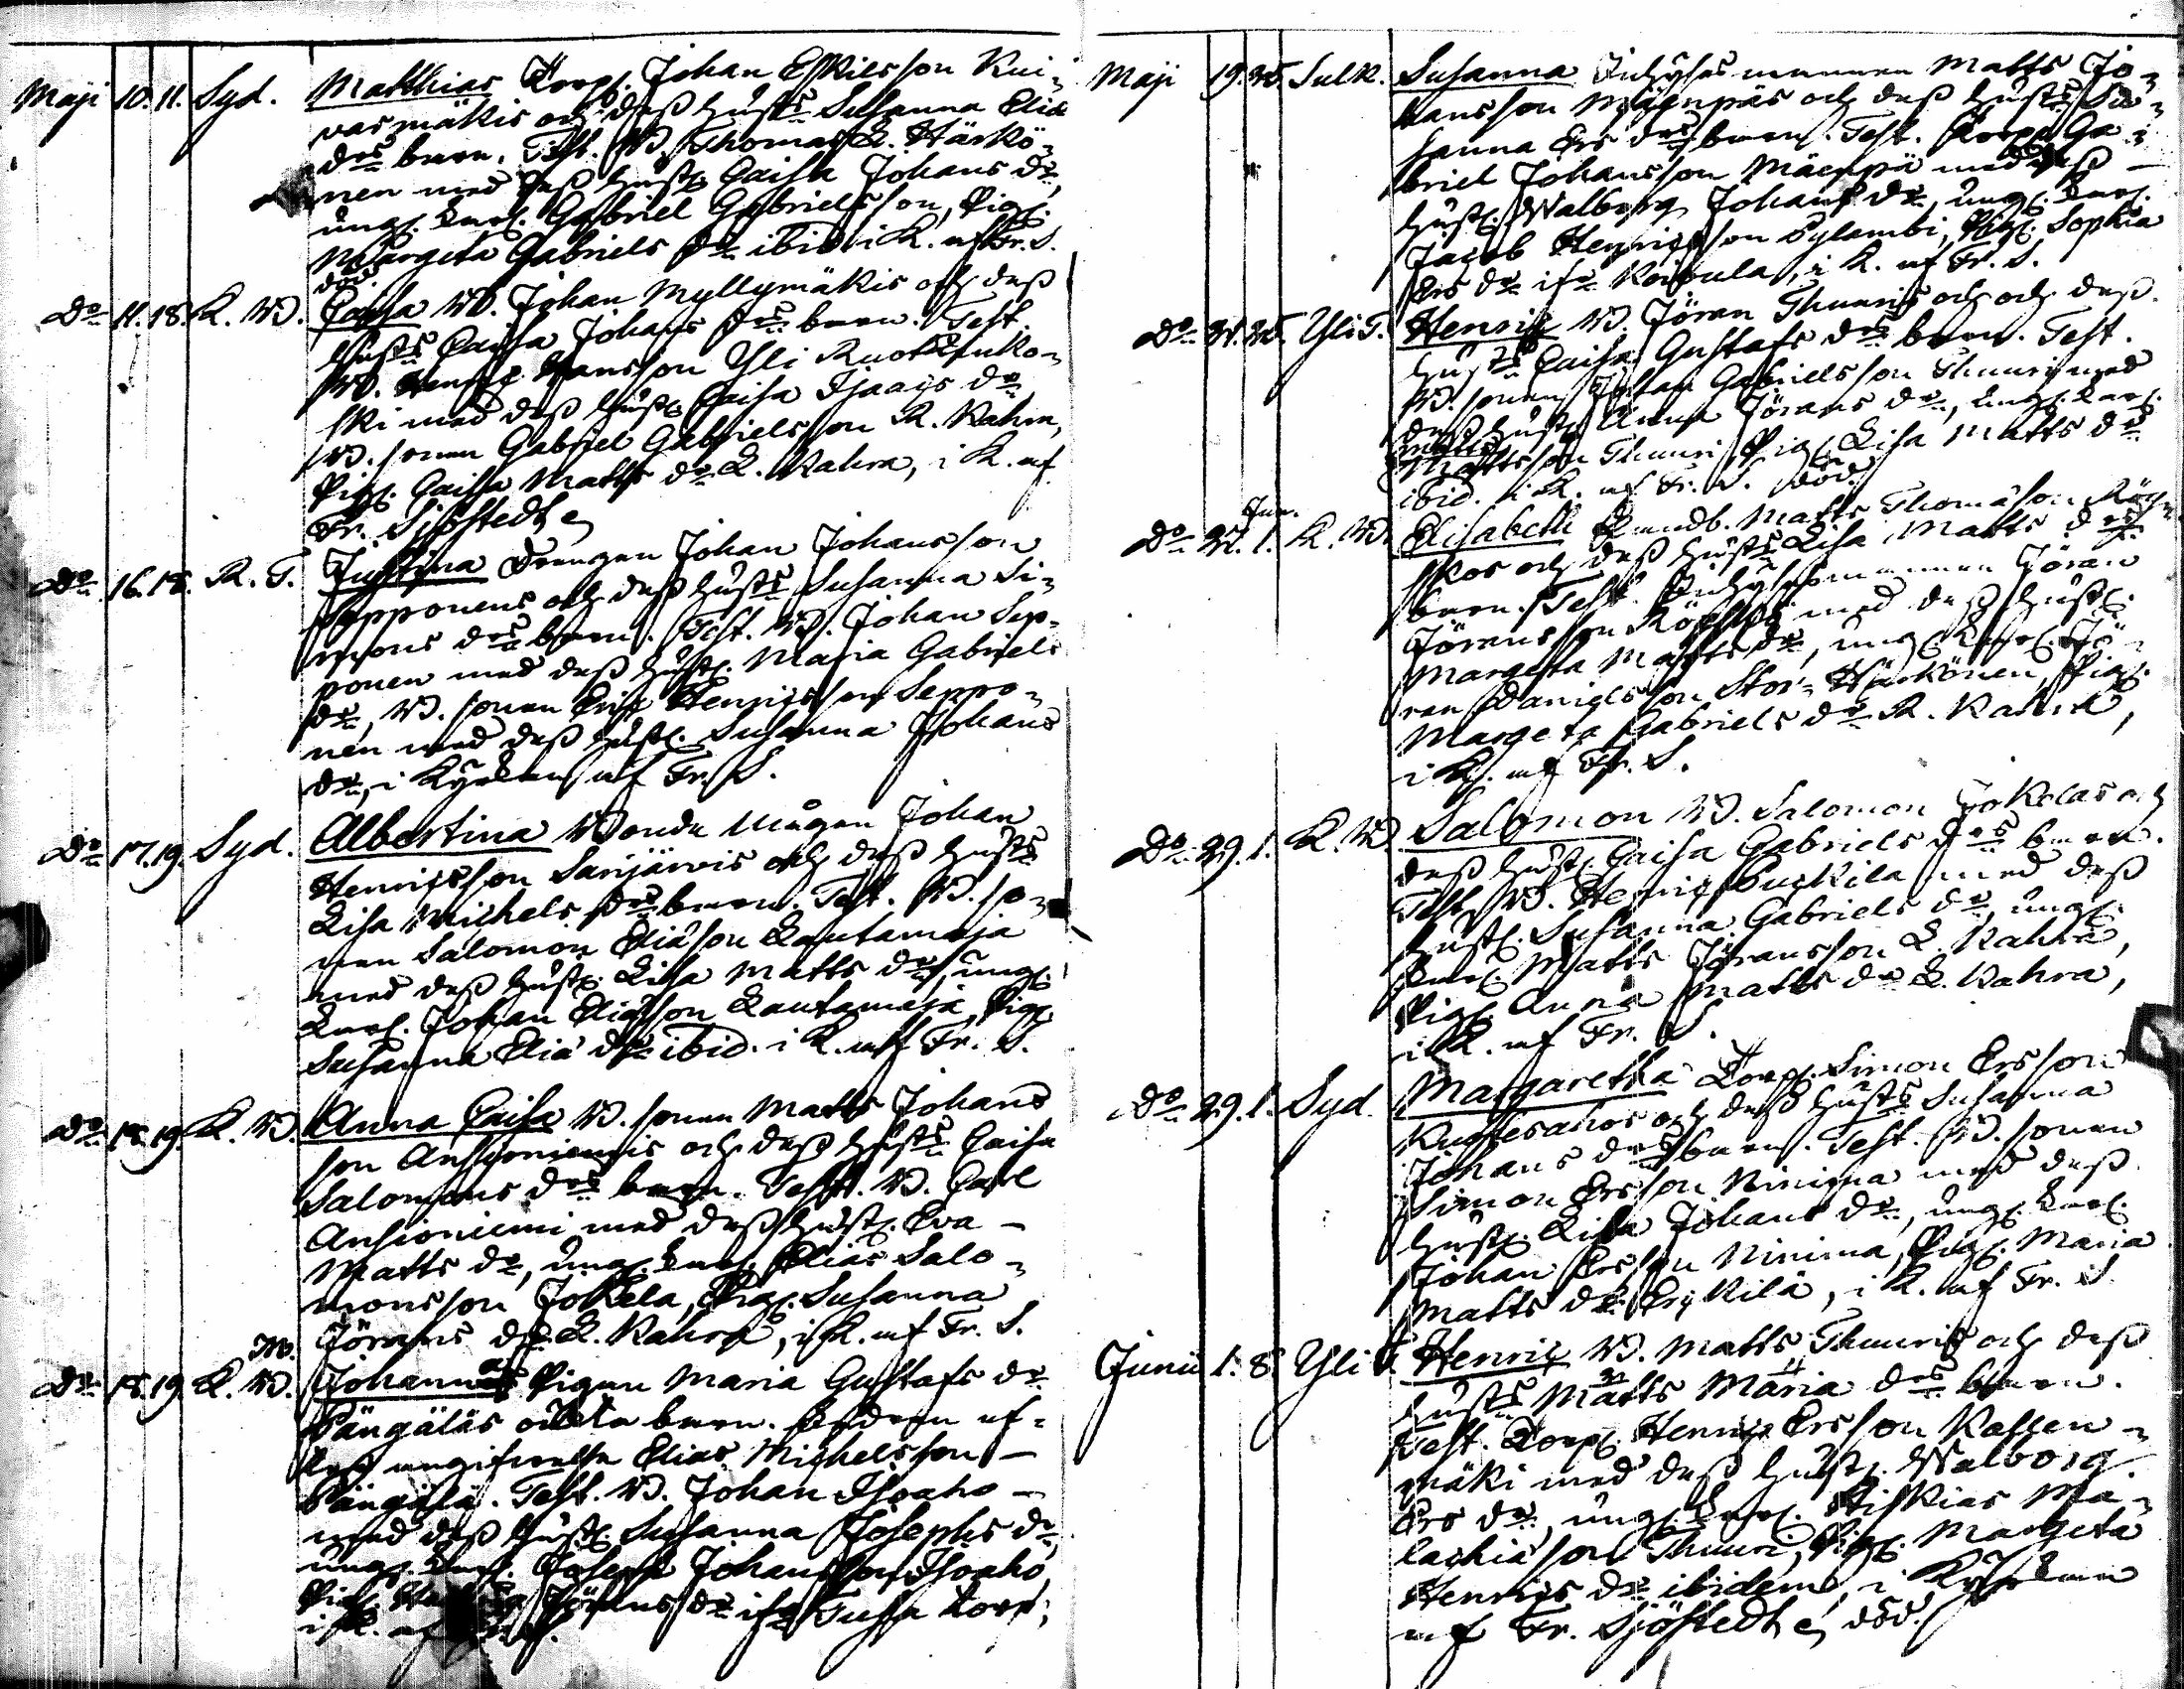 Maji 10. 11. Syd. Matthias Torp. Johan Eskilsson Kui-
varmäkis och dess hust. Susanna Eliæ
drs barn. Test. B. Thomas L. Härkö-
nen med dess hust. Caisa Johans dr,
ung. karl. Gabriel Gabrielsson, Pig.
Margeta Gabriels dr ibid. i K. af Fr. S.
död.
Do 11. 18. K. B. Caisa B. Johan Myllymäkis och dess
hustrs Caisa Johans drs barn. Test.
B. Henric Hansson Yli Ruotzinko-
ski med dess hust. Caisa Isaacs dr
B. sonen Gabriel Gabrielsson R. Kahra,
Pig. Caisa Matts dr L. Kahra, i K. af
Fr. Sjöstedt
Do 16. 18. R. T. Justina Drängen Johan Johansson
Sepponens och dess husts Susanna Si-
mons drs barn. Test. B. Johan Sep-
ponen med dess hust. Maria Gabriels
dr, B. sonen Eric Henricsson Seppo-
nen med dess hust. Susanna Johans
dr, i Kyrkan af Fr. S.
Do 17. 19. Syd. Albertina Bonde mågen Johan
Henricsson Sarijärvis och dess husts
Lisa Michels drs barn. Test. B. so-
nen Salomon Eliæson Lautamaja
med dess hust. Lisa Matts dr, ung.
karl. Johan Eliæson Lautamaja, Pig.
Susanna Eliæ dr ibid. i K. af Fr. S.
Do 18. 19. K. B. Anna Caisa B. sonen Matts Johans
son Ansioniemis och dess husts Caisa
Salomons drs barn. Test. B. Carl
Ansioniemi med dess hust. Eva
Matts dr, ung. karl. Elias Salo-
monsson Jokela, Pig. Susanna
Jörans dr L. Kahra, i K. af Fr. S.
Do 18. 19. K. B. Johannes Pigan Maria Gustafs dr
Pängäläs oäkta barn. Fadren uf-
dess angifvelse Elias Michelsson
Pängälä. Test. B. Johan Isoaho
med dess hust. Susanna Josephs dr
ung. karl. Joseph Johansson Isoaho
Pig. Jörans dr ifr Tussa torp,
i K. af
Maji 19. 25. Sulk. Susanna Inhyses mannen Matts Jo-
hansson Mäenpäs och dess husts Su-
sanna Ers drs barn. Test. Torp. Ga-
briel Johansson Mäenpä med dess
hust. Walborg Johans dr, ung. karl.
Jacob Henricsson Sylambi, Pig. Sophia
Ers dr ifr Koivula, i K. af Fr. S.
Do 21. 25. Yli T. Henric B. Jöran Thuuris och och dess
husts Caisa Gustafs drs barn. Test.
B. sonen Johan Gabrielsson Thuuri med
dess hust. Anna Jörans dr, ung. karl.
Matts
Mattsson Thuuri, Pig. Lisa Matts dr
ibid. i K. af Fr. S. död.
Jun.
Do 27. 1. K. B. Elisabeth Landb. Matts Thomasson Rös-
kos och dess husts Lisa Matts drs
barn. Test. Inhyses mannen Jöran
Jöransson Rösko med dess hust.
Margeta Matts dr, ung. karl. Jö-
ran Danielsson Stor-Härkönen, Pig.
Margeta Gabriels dr R. Kahra,
i K. af Fr. S.
Do 29. 1. K. B. Salomon B. Salomon Jokelas och
dess hust. Caisa Gabriels drs barn.
Test. B. Henric Puckila med dess
hust. Susanna Gabriels dr, ung.
karl. Matts Jöransson L. Kahra,
Pig. Anna Matts dr L. Kahra,
i K. af Fr. S.
Do 29. 1. Syd. Margaretha Torp. Simon Ersson
och dess husts Susanna
Johans drs barn. Test. B. sonen
Simon Ersson Ninima med dess
hust. Lisa Johans dr, ung. karl.
Johan Ersson Ninima, Pig. Maria
Matts dr Erkkilä, i K. af Fr. S.
Junii 1. 8. Yli T. Henric B. Matts Thuuris och dess
husts Matts Maria drs barn.
Test. Torp. Henric Ersson Kallen-
mäki med dess hust. Walborg
Ers dr, ung. karl. Hiskias Ma-
lachiæson Thuuri, Pig. Margeta
Henrics dr ibidem, i Kyrkan
af Fr. Sjöstedt död.